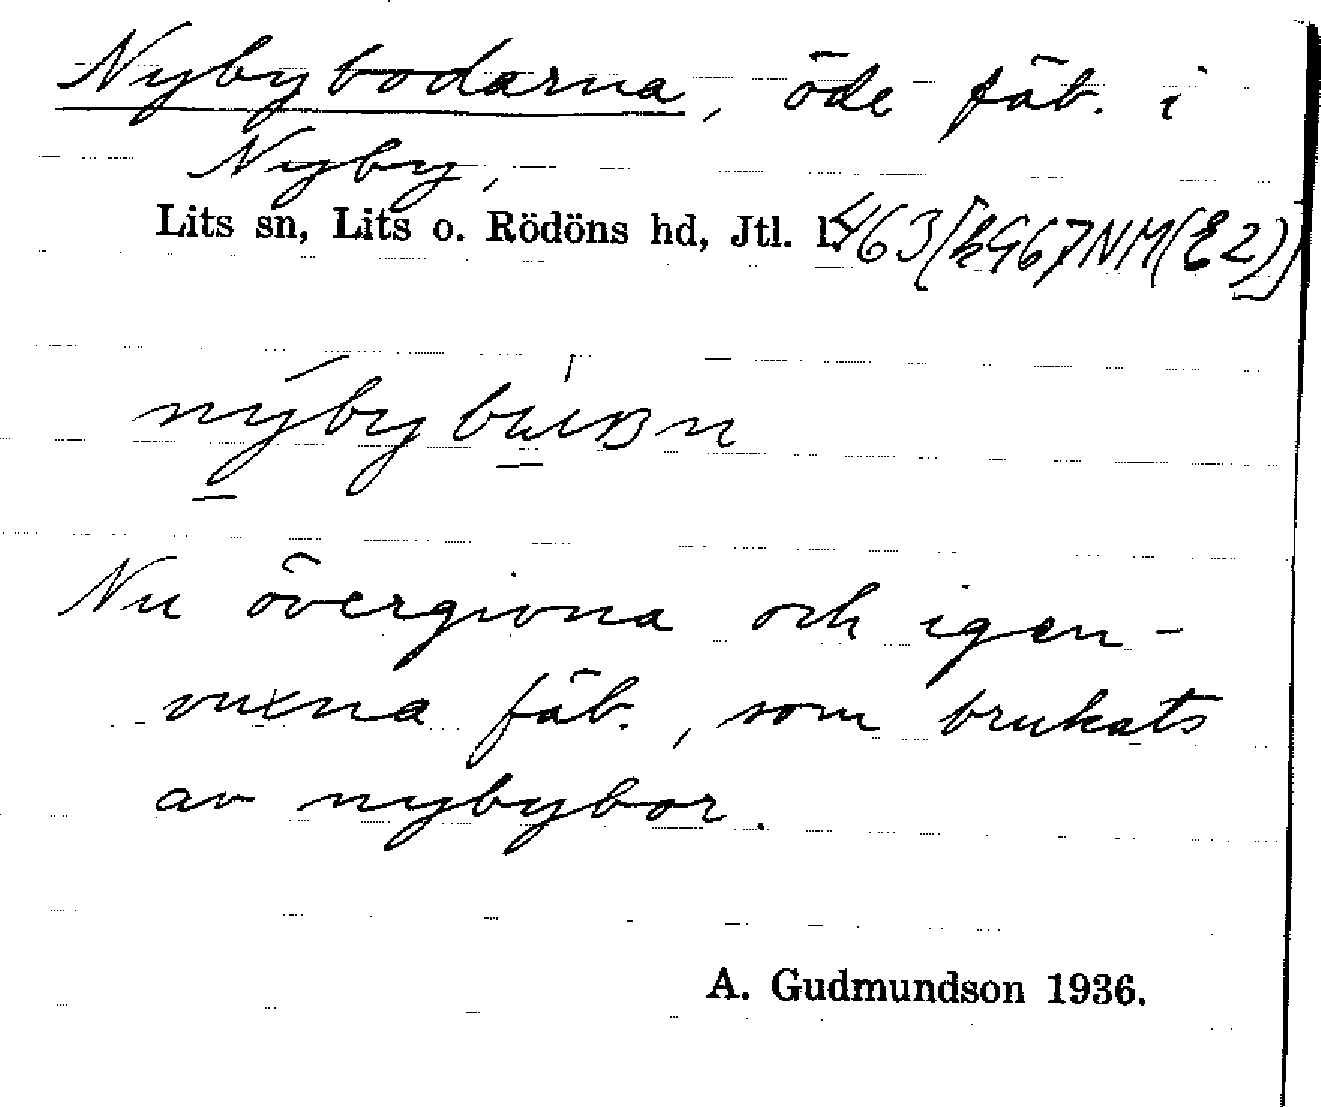 Nybybodarna, öde fäb. i
Nyby,
Lits sn, Lits o. Rödöns hd, Jtl. l.
Nu övergivna och igen-
vuxna fäb., som brukats
av nybybor.
A. Gudmundson 1936.